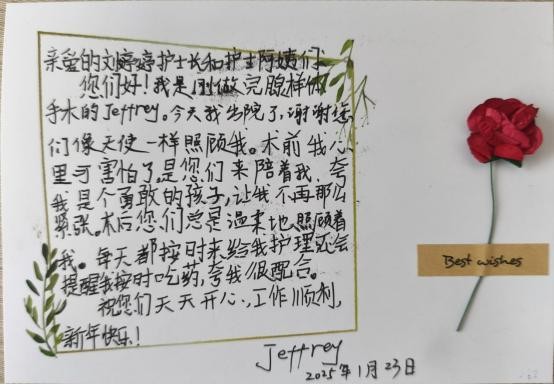 亲爱的刘婷婷护士长和护士阿姨们:
您们好!我是刚做完腺样体
手术的Jeffrey。今天我出院了,谢谢您
们像天使一样照顾我。术前我心
里可害怕了,是您们来陪着我、夸
我是个勇敢的孩子,让我不再那么
紧张。术后您们总是温柔地照顾着
我。每天都按时来给我护理还会
提醒我按时吃药,夸我很配合。
祝您们天天开心,工作顺利,
新年快乐!
Jeffrey
2025年1月23日
Best wishes